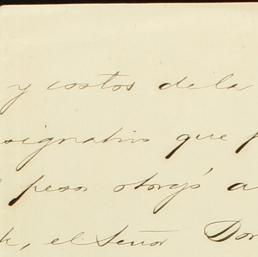 y costos de la
signativo que
pesos otorgó a
el Señor Don